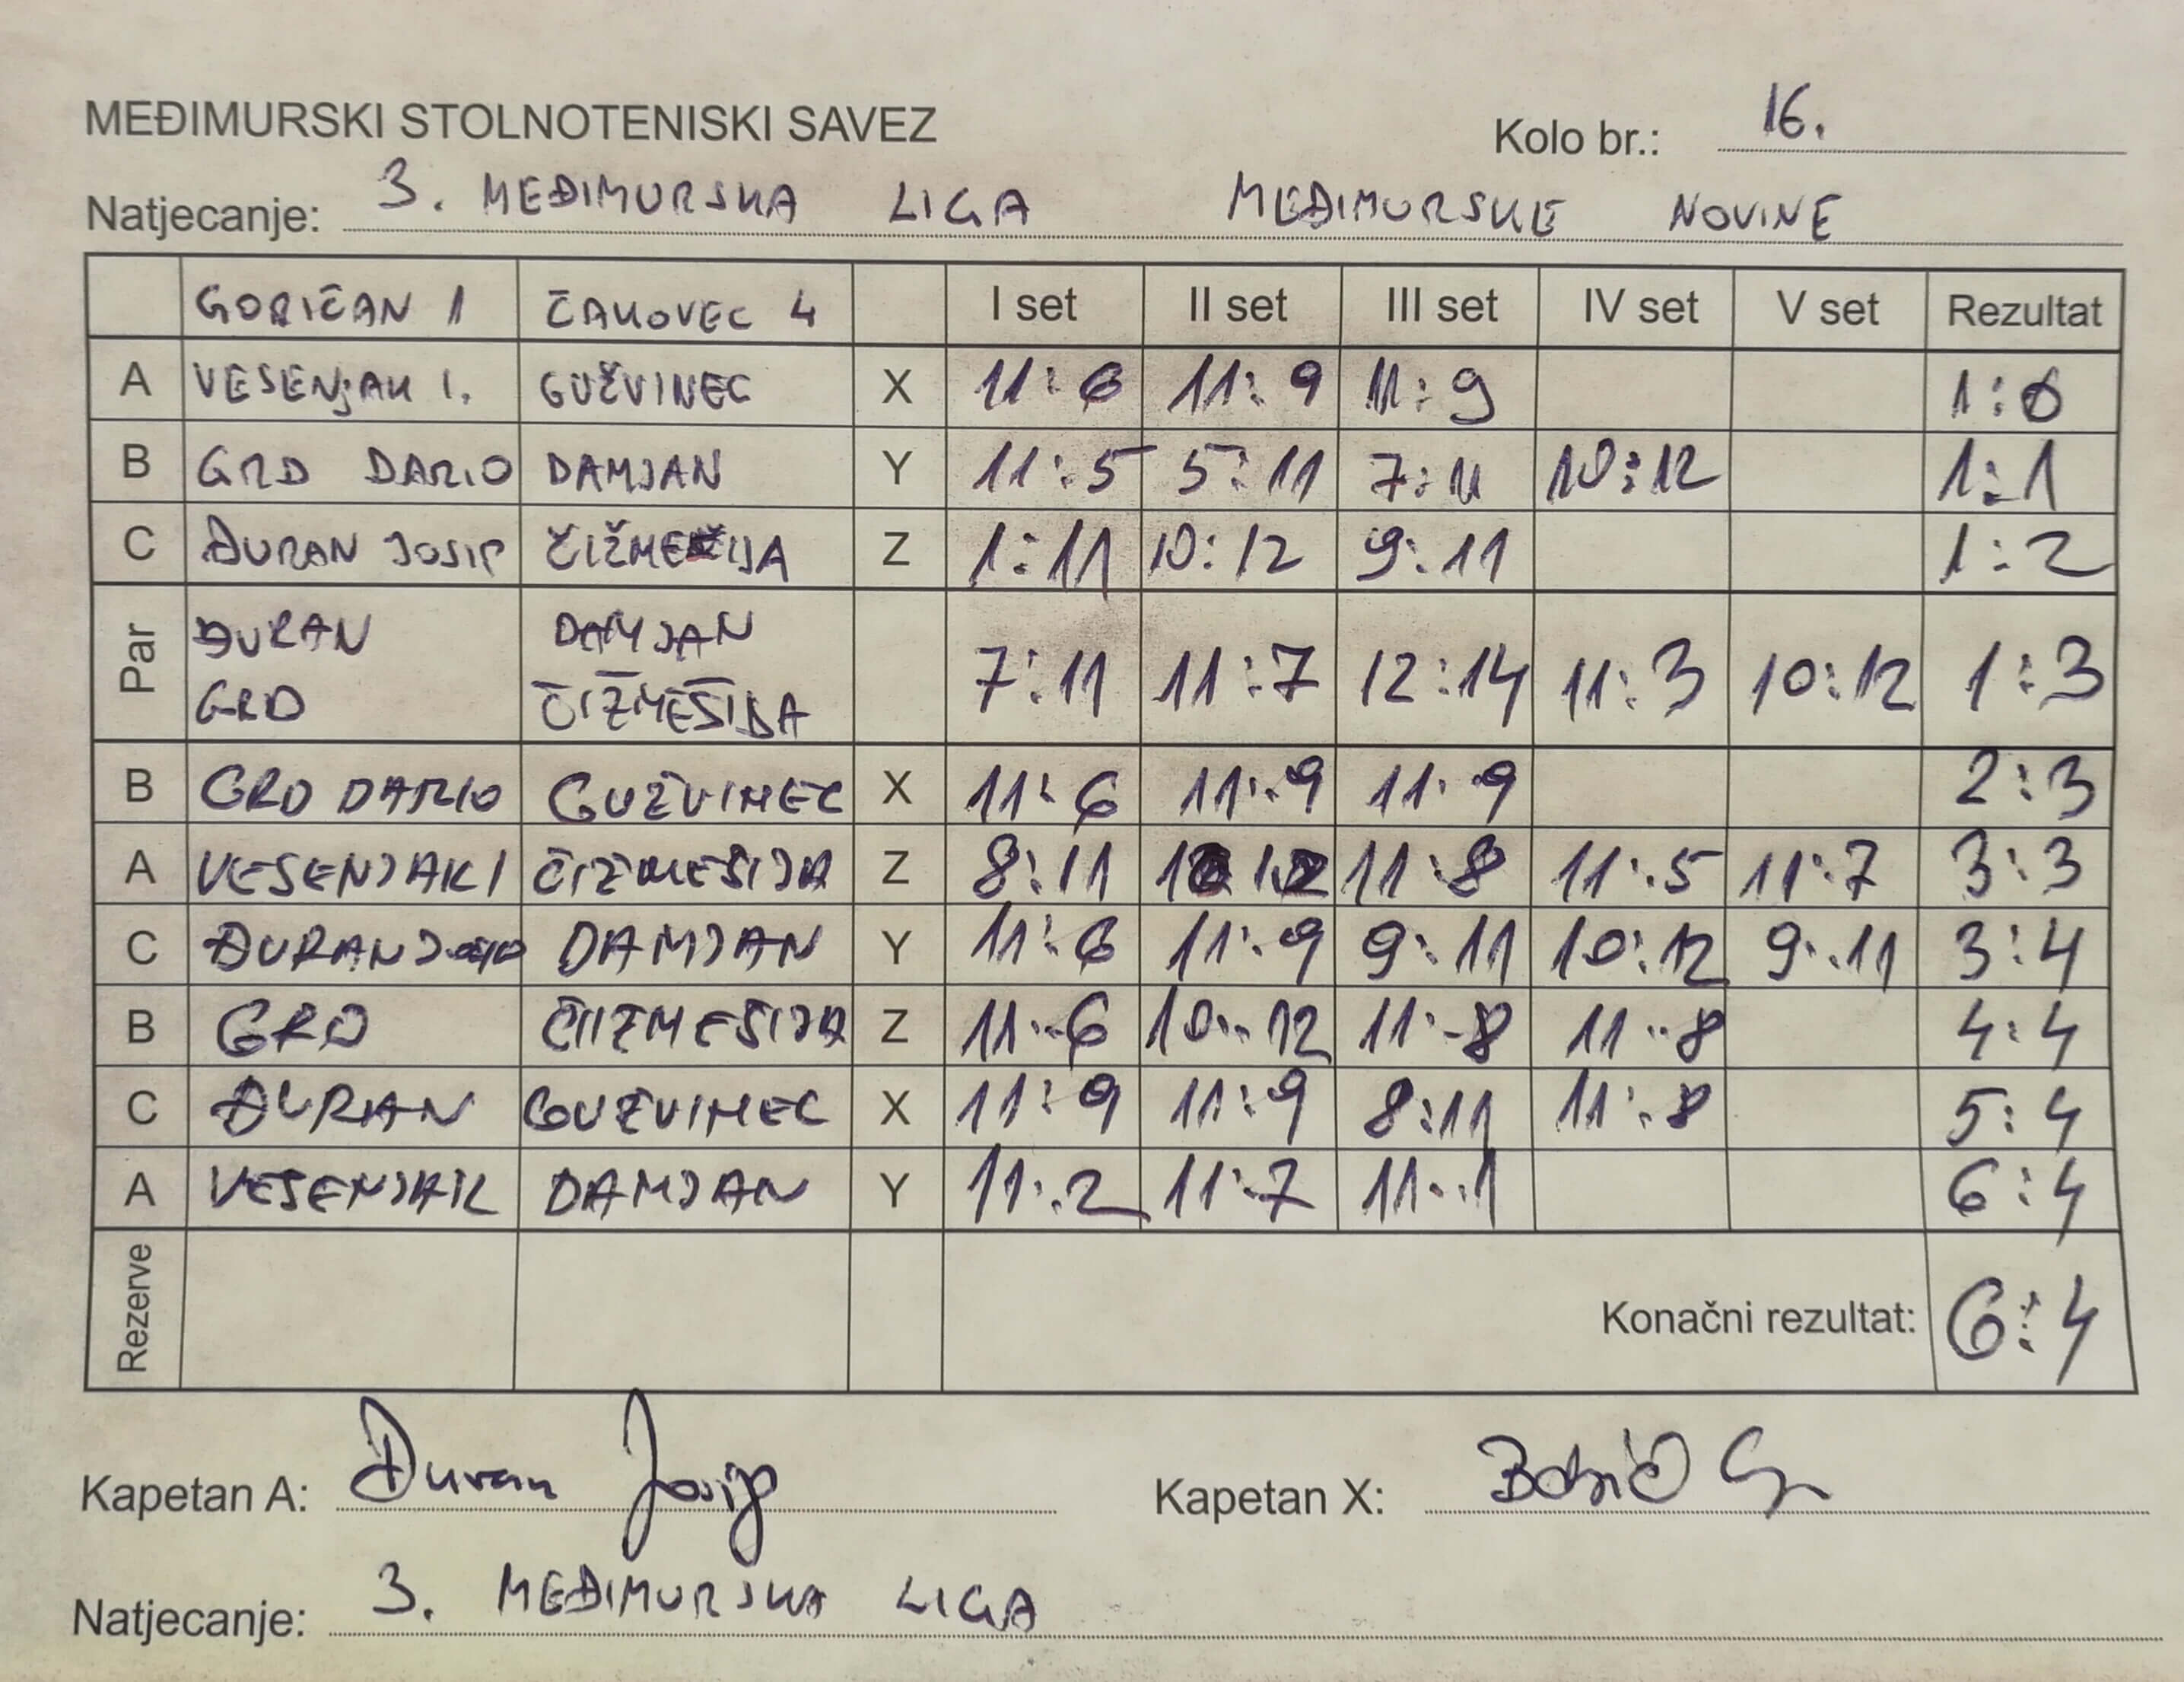 MEĐIMURSKI STOLNOTENISKI SAVEZ Kolo br.: 16.
Natjecanje: 3. MEĐIMURSKA LIGA MEĐIMURSKE NOVINE
GORIČAN 1 ČAKOVEC 4 I set II set III set IV set V set Rezultat
A VESENJAK I. GUŽVINEC X 11:6 11:9 11:9 1:0
B GRD DARIO DAMJAN Y 11:5 5:11 7:11 10:12 1:1
C ĐURAN JOSIP Z 1:11 10:12 9:11 1:2
Par ĐURAN GRD DAMJAN ČIZMEŠIJA 7:11 11:7 12:14 11:3 10:12 1:3
B GRD DARIO GUŽVINEC X 11:6 11:9 11:9 2:3
A VESENJAK I ČIZMEŠIJA Z 8:11 11:8 11:5 11:7 3:3
C ĐURAN DAMJAN Y 11:6 11:9 9:11 10:12 9:11 3:4
B GRD ČIIZMEŠIJA Z 11:6 10:12 11:8 11:8 4:4
C ĐURAN GUZVINEC X 11:9 11:9 8:11 11:8 5:4
A VESENJAK DAMJAN Y 11:2 11:7 11:1 6:4
Rezerve Konačni rezultat: 6:4
Kapetan A: Đuran Josip Kapetan X:
Natjecanje: 3. MEĐIMURSKA LIGA